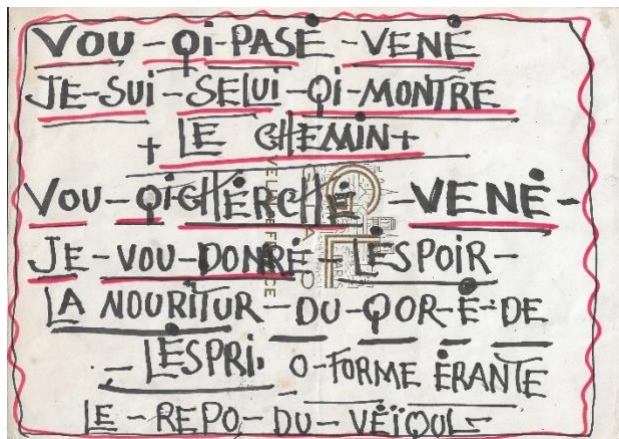 VOU-Qi-PASĖ-VENĖ
JE-SUi-SELUi-Qi-MONTRE
+ LE CHEMiN+
VOU-Qi-CHĖRCHĖ-VENĖ-
JE-VOU-DONRĖ-LESPOiR-
LA NOURiTUR-DU-QOR-Ė-DE
-LESPRi. O-FORME ĖRANTE
LE-REPO-DU-VĖÏQUL-